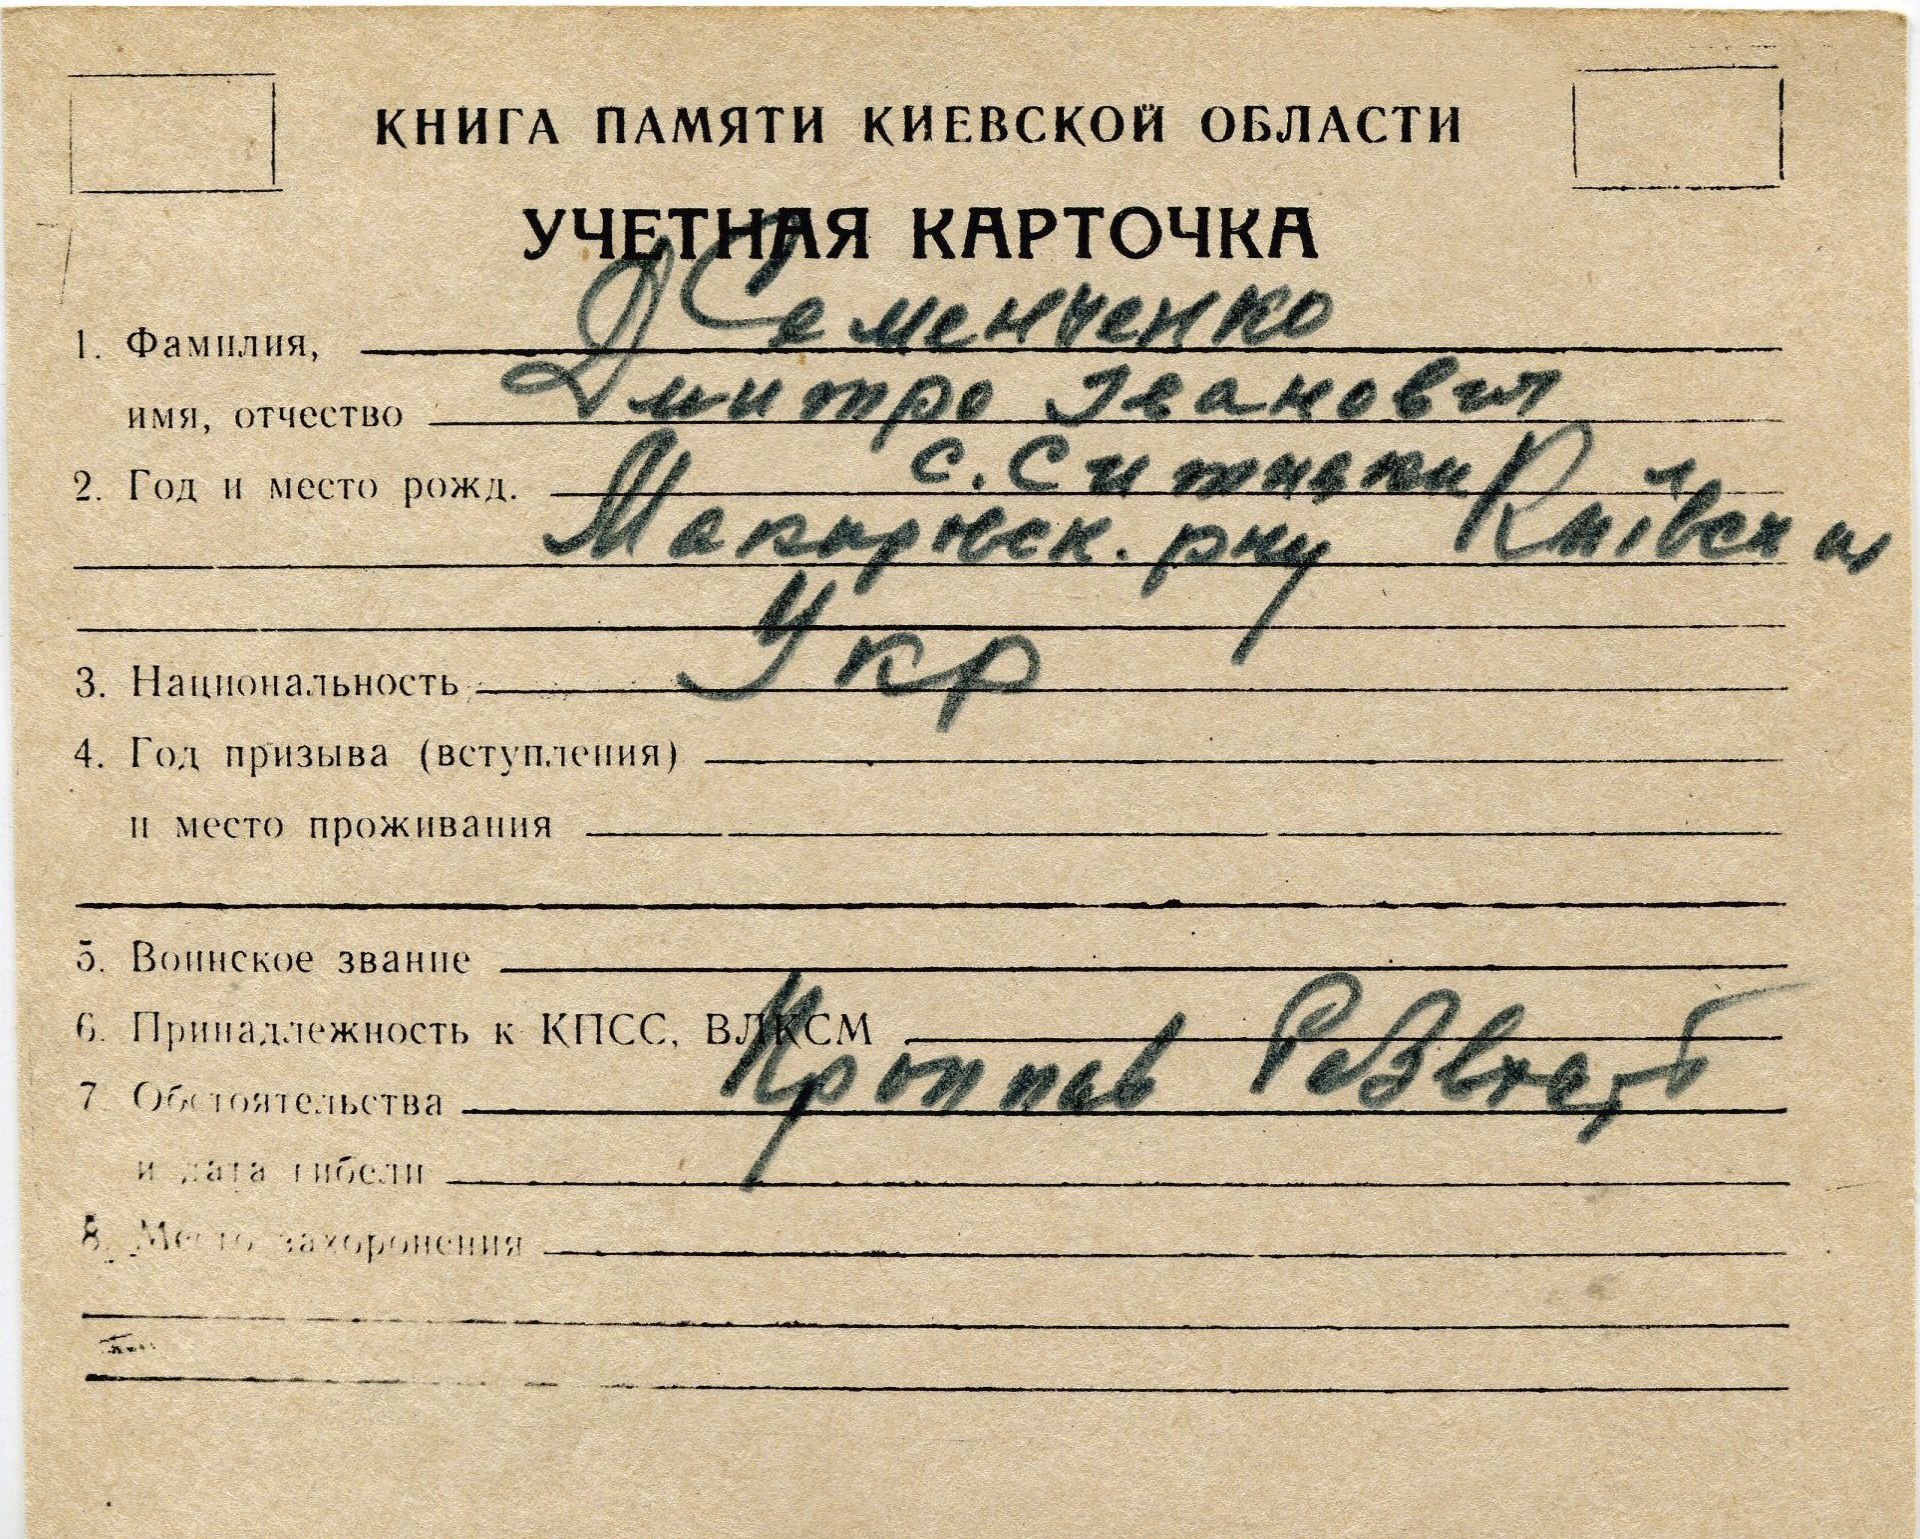 КНИГА ПАМЯТИ КИЕВСКОЙ ОБЛАСТИ
УЧЕТНАЯ КАРТОЧКА
1. Фамилия, Семенченко
имя, отчество Дмитро Іванович
2. Год и место рожд. с. Ситняки Київськ
Макарівськ. рну
3. Национальность Укр
4. Год призыва (вступления)
и место проживания
5. Воинское звание
6. Принадлежность к КПСС, ВЛКСМ
7. Обстоятельства
и дата гибели
8. Место захоронения